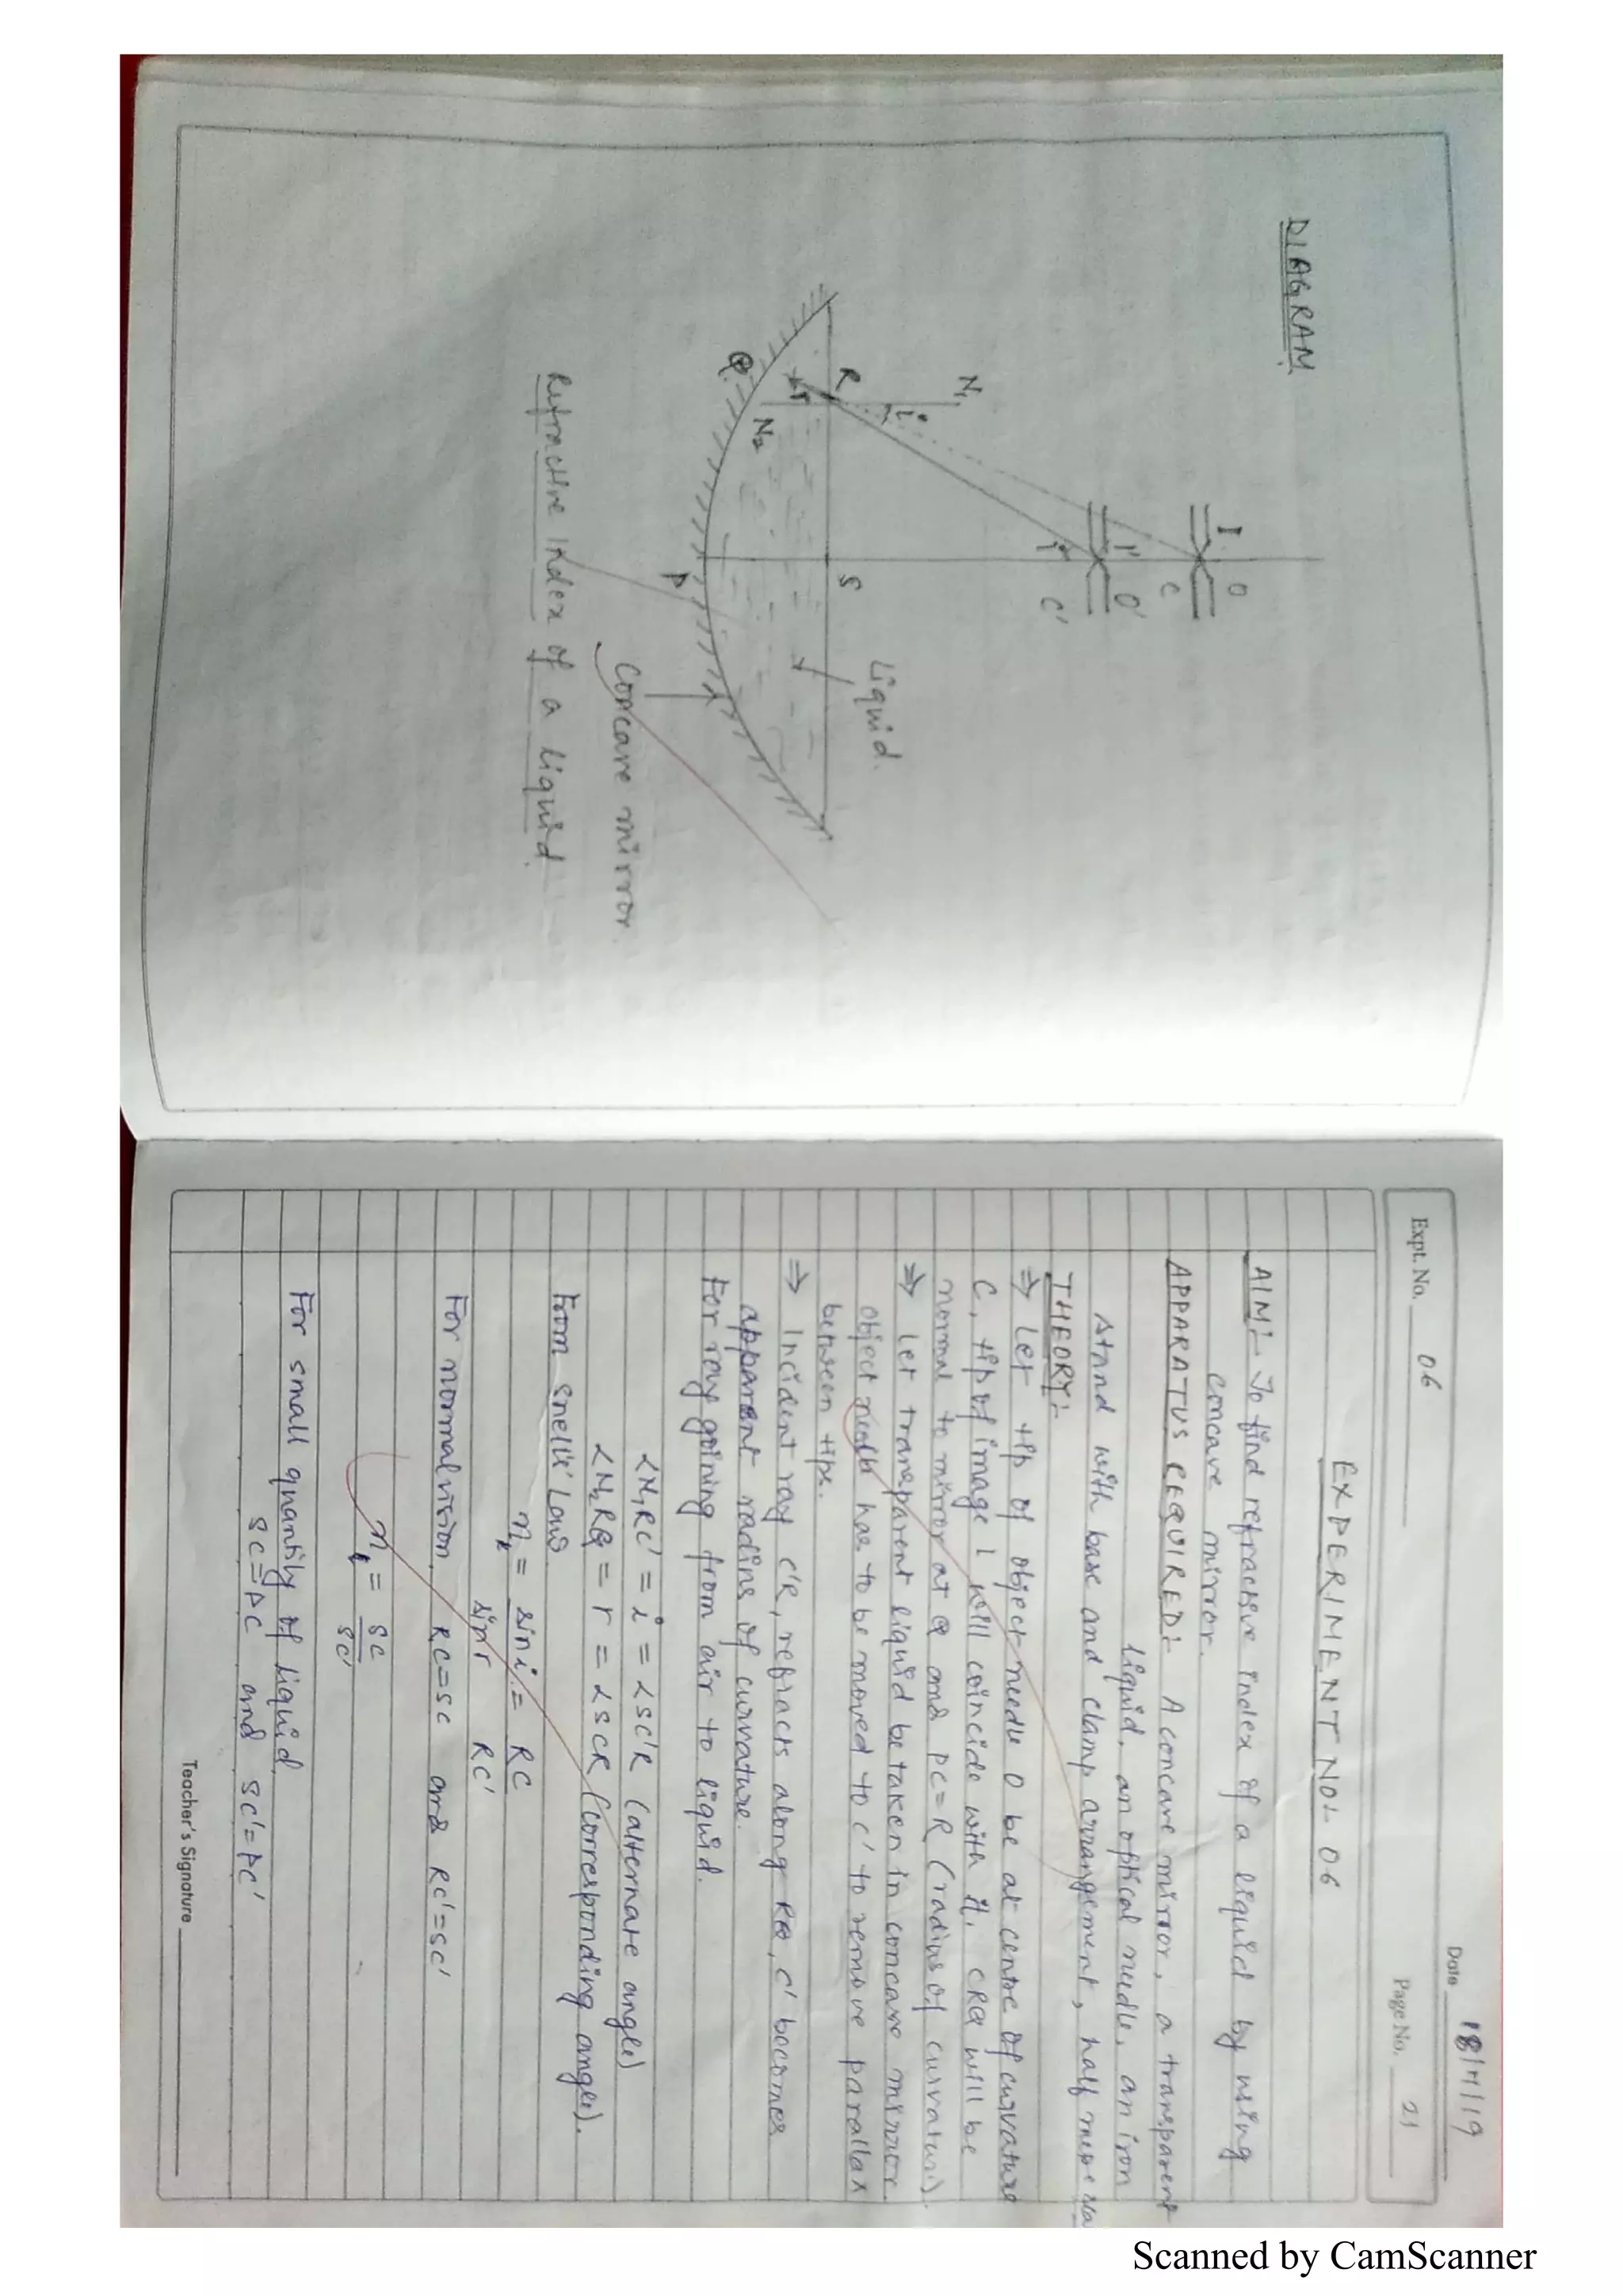 DIAGRAM
I O
C
I' O'
C'
i
N₁
i
R
S
Liquid.
r
N₂
Q
P
Concave mirror.
Refractive Index of a liquid.
Date 18/11/19
Expt. No. 06
Page No. 21
EXPERIMENT NO:- 06
AIM:- To find refractive index of a liquid by using
concave mirror.
APPARATUS REQUIRED:- A concave mirror, a transparent
liquid, an optical needle, an iron
stand with base and clamp arrangement, half metre
THEORY:-
⇒ Let tip of object needle O be at centre of curvature
C, tip of image I will coincide with it. CRQ will be
normal to mirror at Q and PC=R (radius of curvature).
⇒ Let transparent liquid be taken in concave mirror.
object has to be moved to C' to remove parallax
between tips.
⇒ Incident ray C'R, refracts along RQ, C' becomes
apparent radius of curvature.
For ray going from air to liquid.
∠N₁RC' = i = ∠SC'R (alternate angle)
∠N₂RQ = r = ∠SCR (corresponding angle).
From snell's' Law
n = sin i = RC
sin r RC'
For normal vision RC=SC and RC'=SC'
n = SC
SC'
For small quantity of liquid,
SC=PC and SC'=PC'
Teacher's Signature
Scanned by CamScanner